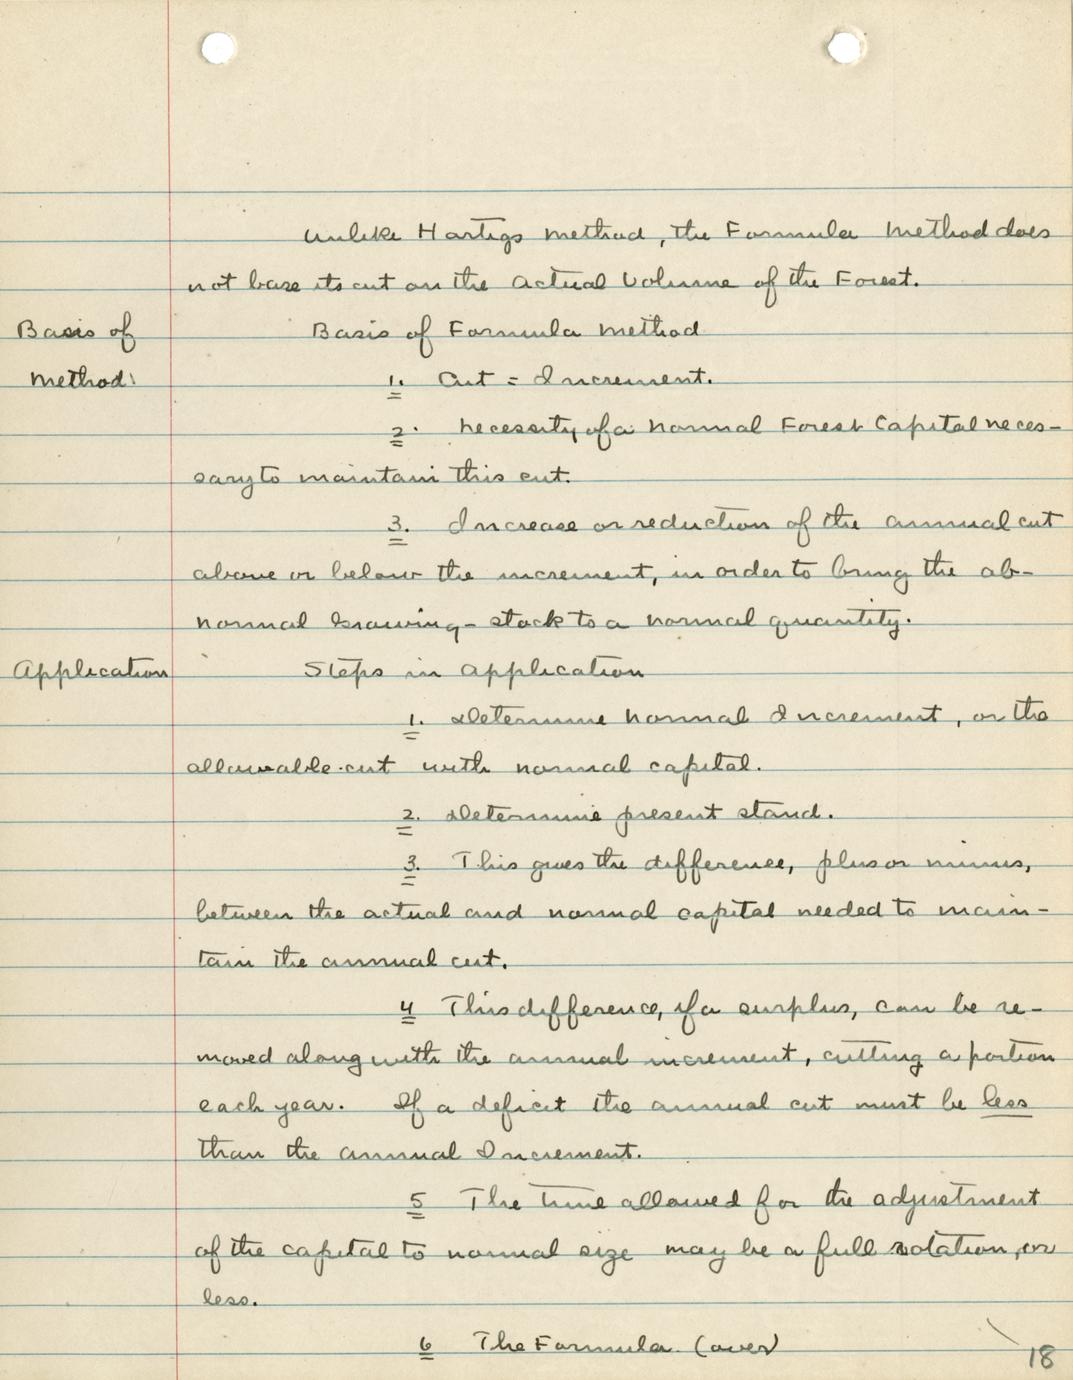 Unlike Hartigs method, the Formula Method does
not base its cut on the Actual Volume of the Forest.
Basis of Basis of Formula Method
Method: 1. Cut = Increment.
2. Necessity of a Normal Forest Capital neces-
sary to maintain this cut.
3. Increase or reduction of the annual cut
above or below the increment, in order to bring the ab-
normal Growing-stock to a normal quantity.
Application Steps in Application
1. Determine Normal Increment, or the
allowable cut with normal capital.
2. Determine present stand.
3. This gives the difference, plus or minus,
between the actual and normal capital needed to main-
tain the annual cut.
4 This difference, if a surplus, can be re-
moved along with the annual increment, cutting a portion
each year. If a deficit the annual cut must be less
than the annual Increment.
5 The time allowed for the adjustment
of the capital to normal size may be a full rotation, or
less.
6 The Formula. (over)
18